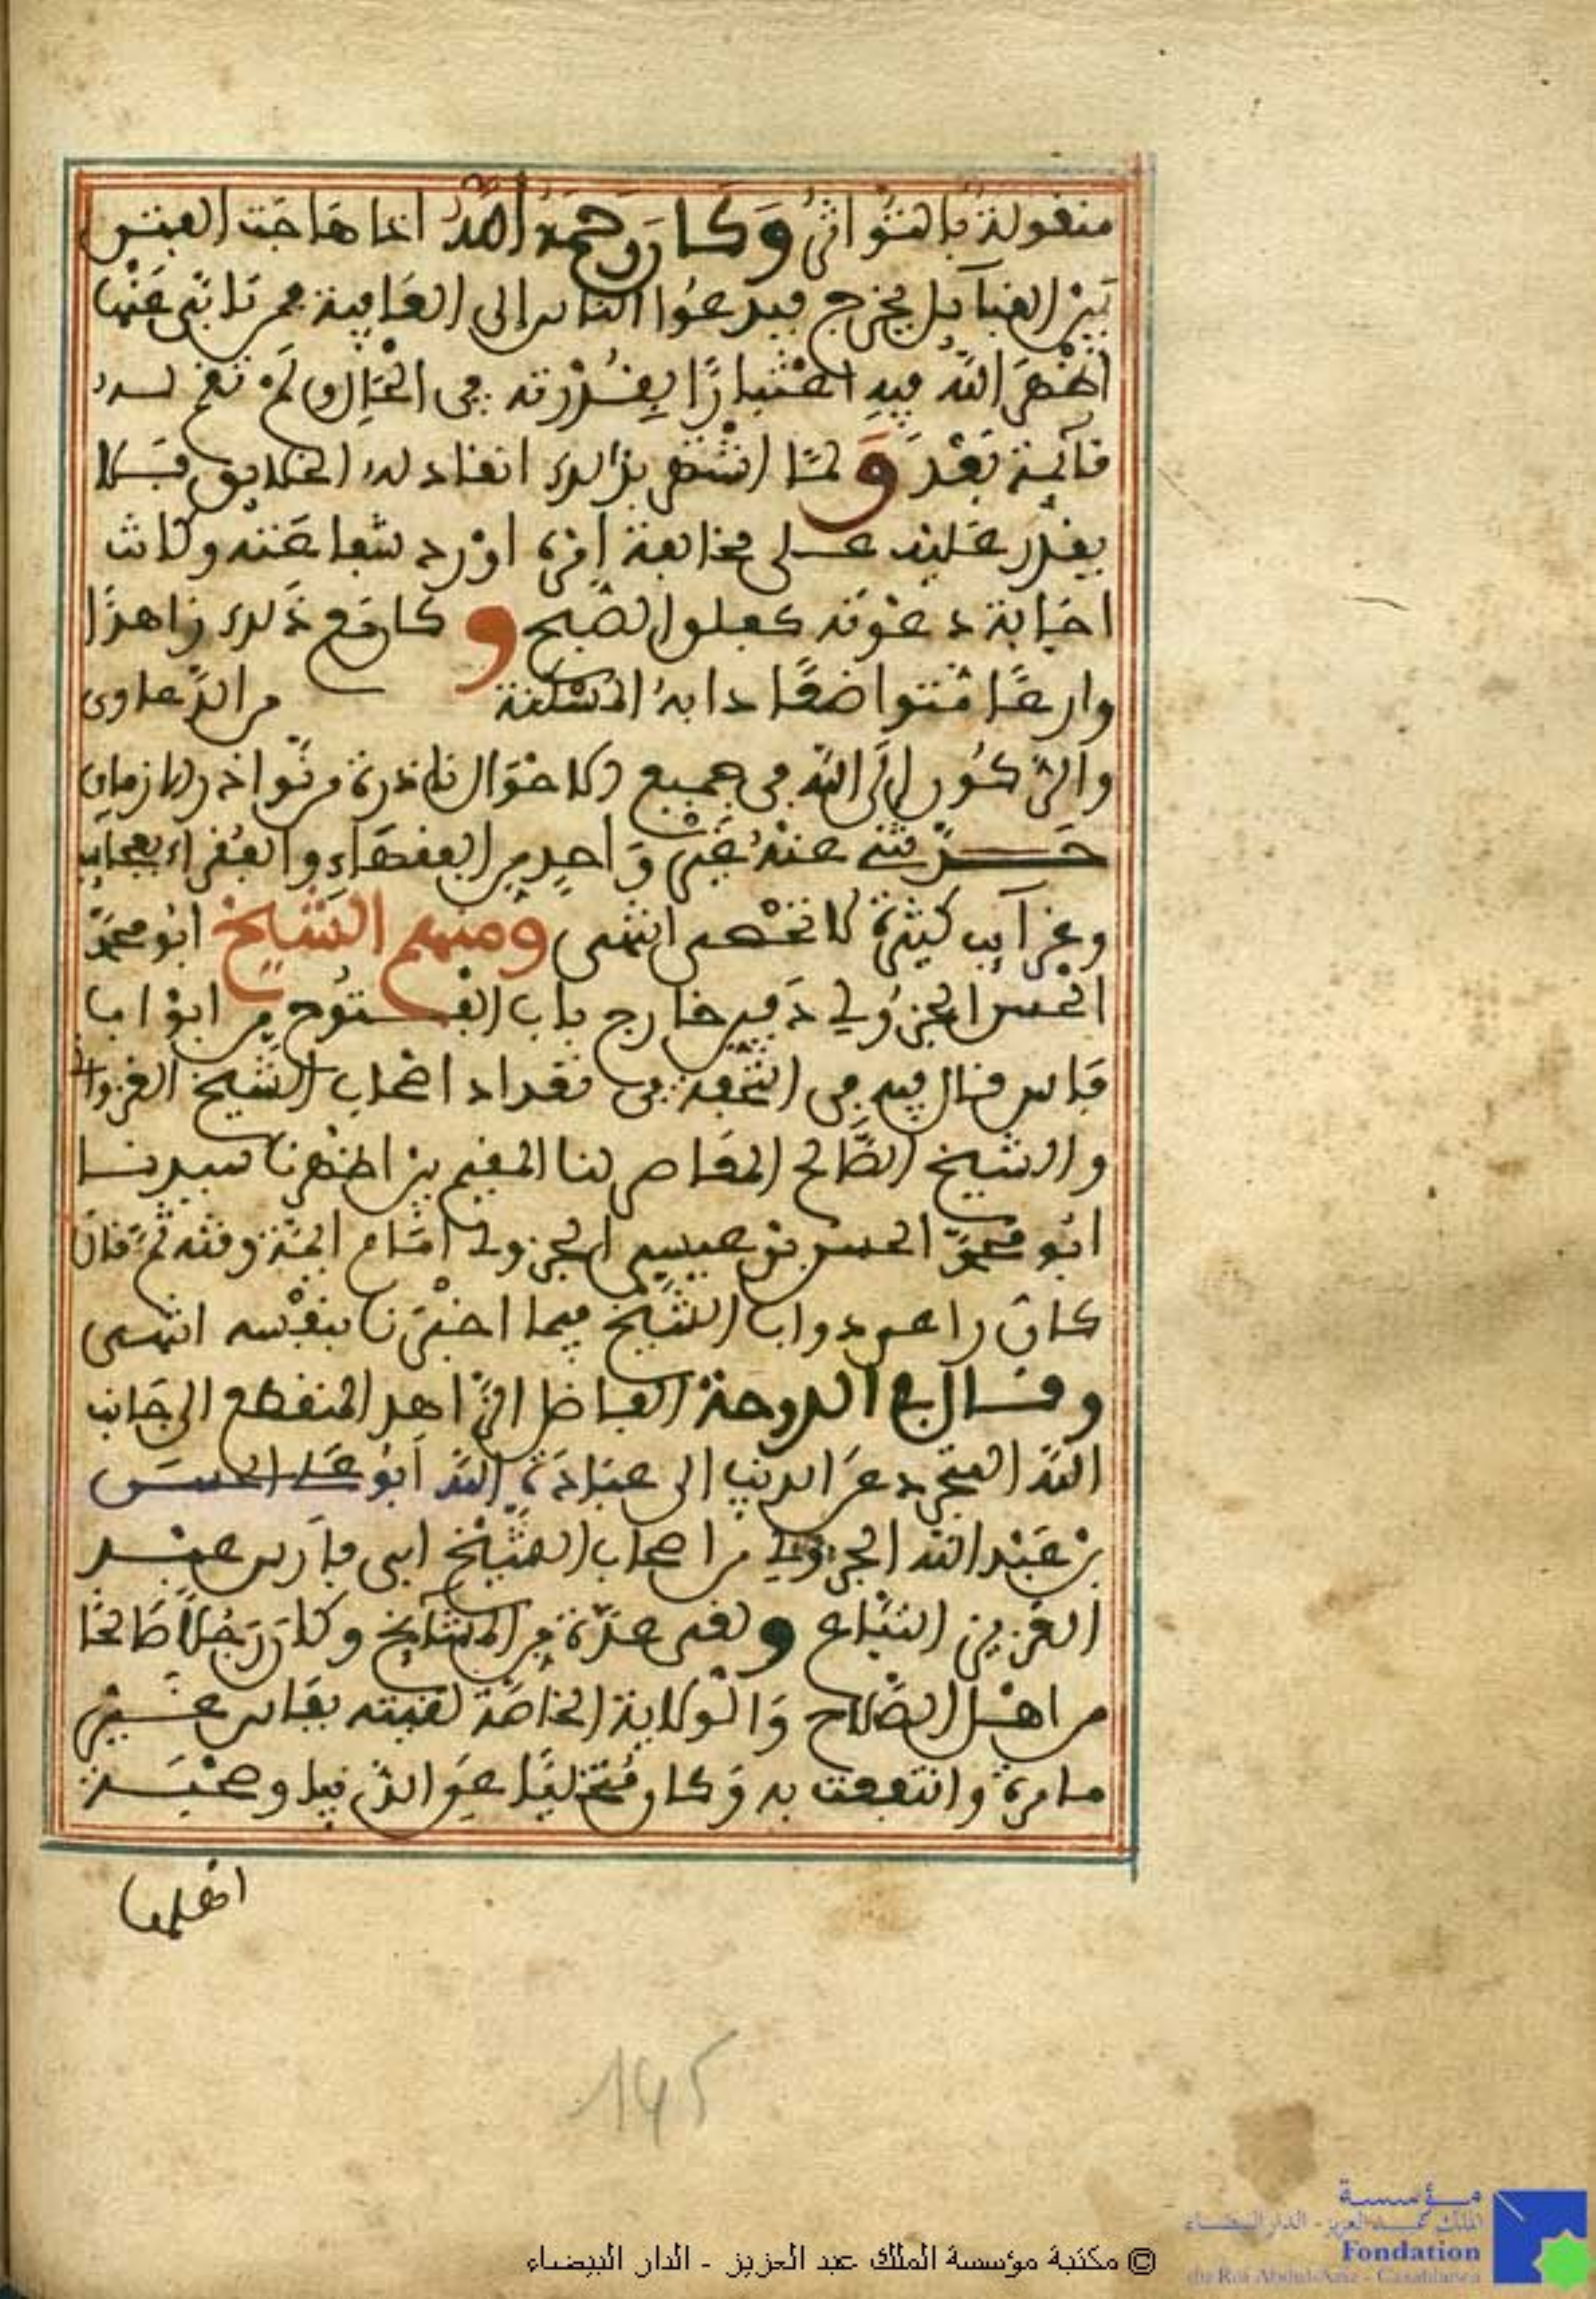 منقولة بالتواتر وكان رحمه الله اذا هاجت الفتن
بين القبآيل يخرج فيدعوا الناس إلى العافية فمن تابى عنها
اظهر الله فيه اعتبارًا بقدرته في الحال ولم تقم له
قآئمة بعد ولما اشتهر بذالك انقاد له الخلايق فلا
يقدر على مخالفة امره او رد شفاعته وكانت
اجابة دعوته كفلق الصبح وكان مع ذلك زاهدًا
وارعًا متواضعًا دابه المسكنة من الدعاوى
والركون إلى الله في جميع الاحوال نادرة من نوادر الزمان
حدثني عنه غير واحد من الفقهاء والفقراء بعجايب
وغرآيب كثيرة لا تحصى انتهى ومنهم الشيخ ابو محمد
الحسن الجزولي دفين خارج باب الفتوح من ابواب
فاس قال فيه في التحفة في تعداد اصحاب الشيخ الغزواني
والشيخ الصالح المعاصر لنا المقيم بين اظهرنا سيدنا
ابو محمد الحسن بن عيسى الجزولي امام الجنة وفته ثم قال
كان راعي دواب الشيخ فيما اخبرنا بنفسه انتهى
وقال في الدوحة الفاضل الزاهد المنقطع الى جانب
الله المتجرد عن الدنيا الى عبادة الله ابو علي الحسن
بن عبد الله الجزولي من اصحاب الشيخ ابي فارس عبد
العزيز التباع ولقي عدة من المشآيخ وكان رجلاً صالحًا
من اهل الصلاح والولاية الخاصة لقيته بفاس غير
ما مرة وانتفعت به وكان متخليًا عن الدنيا وصحبة
اهلها
145
© مكتبة مؤسسة الملك عبد العزيز - الدار البيضاء
مؤسسة
الملك عبد العزيز - الدار البيضاء
Fondation
du Roi Abdul-Aziz - Casablanca